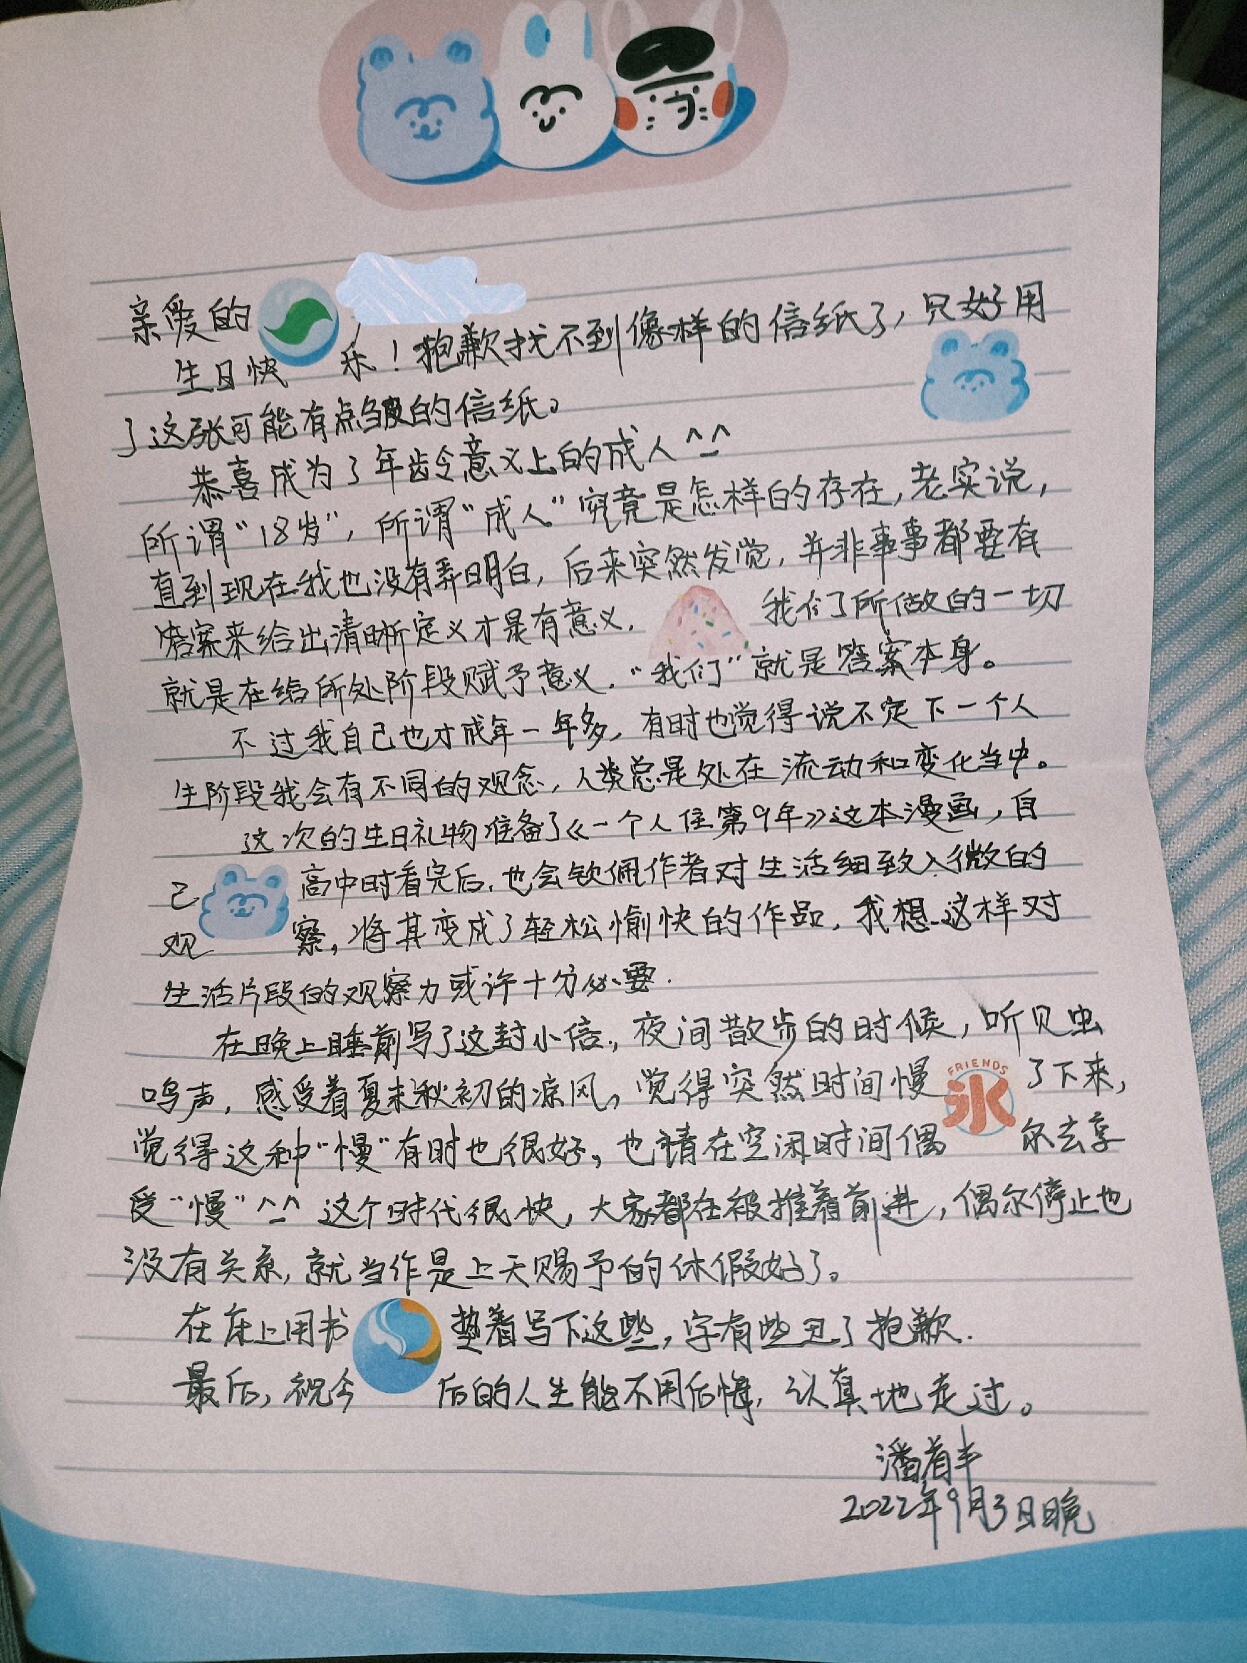 亲爱的
生日快乐！抱歉找不到像样的信纸了，只好用
了这张可能有点皱的信纸。
恭喜成为了年龄意义上的成人^_^
所谓“18岁”，所谓“成人”究竟是怎样的存在，老实说，
直到现在我也没有弄明白，后来突然发觉，并非事事都要有
答案来给出清晰定义才是有意义．我们所做的一切
就是在给所处阶段赋予意义．“我们”就是答案本身。
不过我自己也才成年一年多，有时也觉得说不定下一个人
生阶段我会有不同的观念，人类总是处在流动和变化当中。
这次的生日礼物准备了《一个人住第9年》这本漫画，自
己高中时看完后，也会钦佩作者对生活细致入微的
观察，将其变成了轻松愉快的作品，我想这样对
生活片段的观察力或许十分必要．
在晚上睡前写了这封小信，夜间散步的时候，听见虫
鸣声，感受着夏末秋初的凉风，觉得突然时间慢了下来，
FRIENDS
冰
觉得这种“慢”有时也很好，也请在空闲时间偶尔去享
受“慢”^_^ 这个时代很快，大家都在被推着前进，偶尔停止也
没有关系，就当作是上天赐予的休假好了。
在床上用书垫着写下这些，字有些丑了抱歉．
最后，祝今后的人生能不用后悔，认真地走过。
潘首丰
2022年9月3日晚